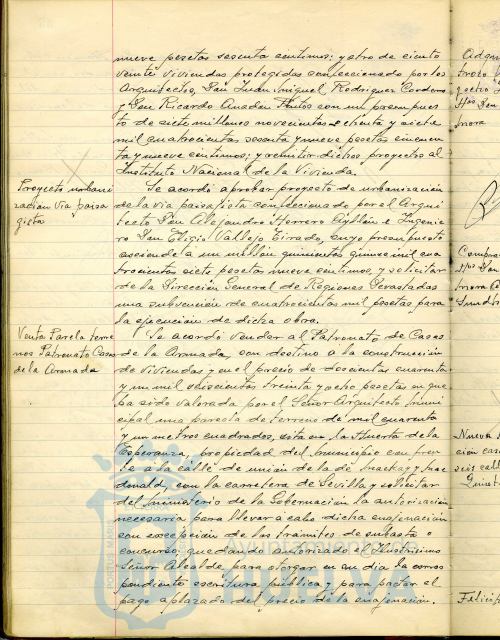 nueve pesetas sesenta centimos; y otro de ciento
veinte viviendas protegidas confeccionado por los
Arquitectos, Don Juan Miguel Rodriguez Cordero
y Don Ricardo Anadon Frutos con un presupues
to de siete millones novecientas ochenta y siete
mil cuatrocientas sesenta y nueve pesetas cincuen
ta y nueve centimos; y remitir dichos proyectos al
Instituto Nacional de la Vivienda.
Proyecto urbani
zacion via paisa
gista
Se acordó aprobar proyecto de urbanización
de la via paisagista confeccionado por el Arqui
tecto Don Alejandro Herrero Ayllón e Ingenie
ro Don Eligio Vallejo Tirado, cuyo presupuesto
asciende a un millón quinientas quince mil cua
trocientas siete pesetas nueve centimos, y solicitar
de la Dirección General de Regiones Devastadas
una subvención de cuatrocientas mil pesetas para
la ejecución de dicha obra.
Venta Parcela terre
nos Patronato Casas
de la Armada
Se acordó vender al Patronato de Casas
de la Armada, con destino a la construcción
de viviendas y en el precio de doscientas cuarenta
y un mil seiscientas treinta y ocho pesetas en que
ha sido valorada por el Señor Arquitecto Muni
cipal una parcela de terreno de mil cuarenta
y un metros cuadrados, sita en la Huerta de la
Esperanza, propiedad del municipio con fren
te a la calle de unión de la de Mackay y Mac
donald, con la carretera de Sevilla y solicitar
del Ministerio de la Gobernación la autorización
necesaria para llevar a cabo dicha enajenación
con excepción de los trámites de subasta o
concurso; quedando autorizado el Ilustrisimo
Señor Alcalde para otorgar en su dia la corres
pondiente escritura pública y para pactar el
pago aplazado del precio de la enajenación.